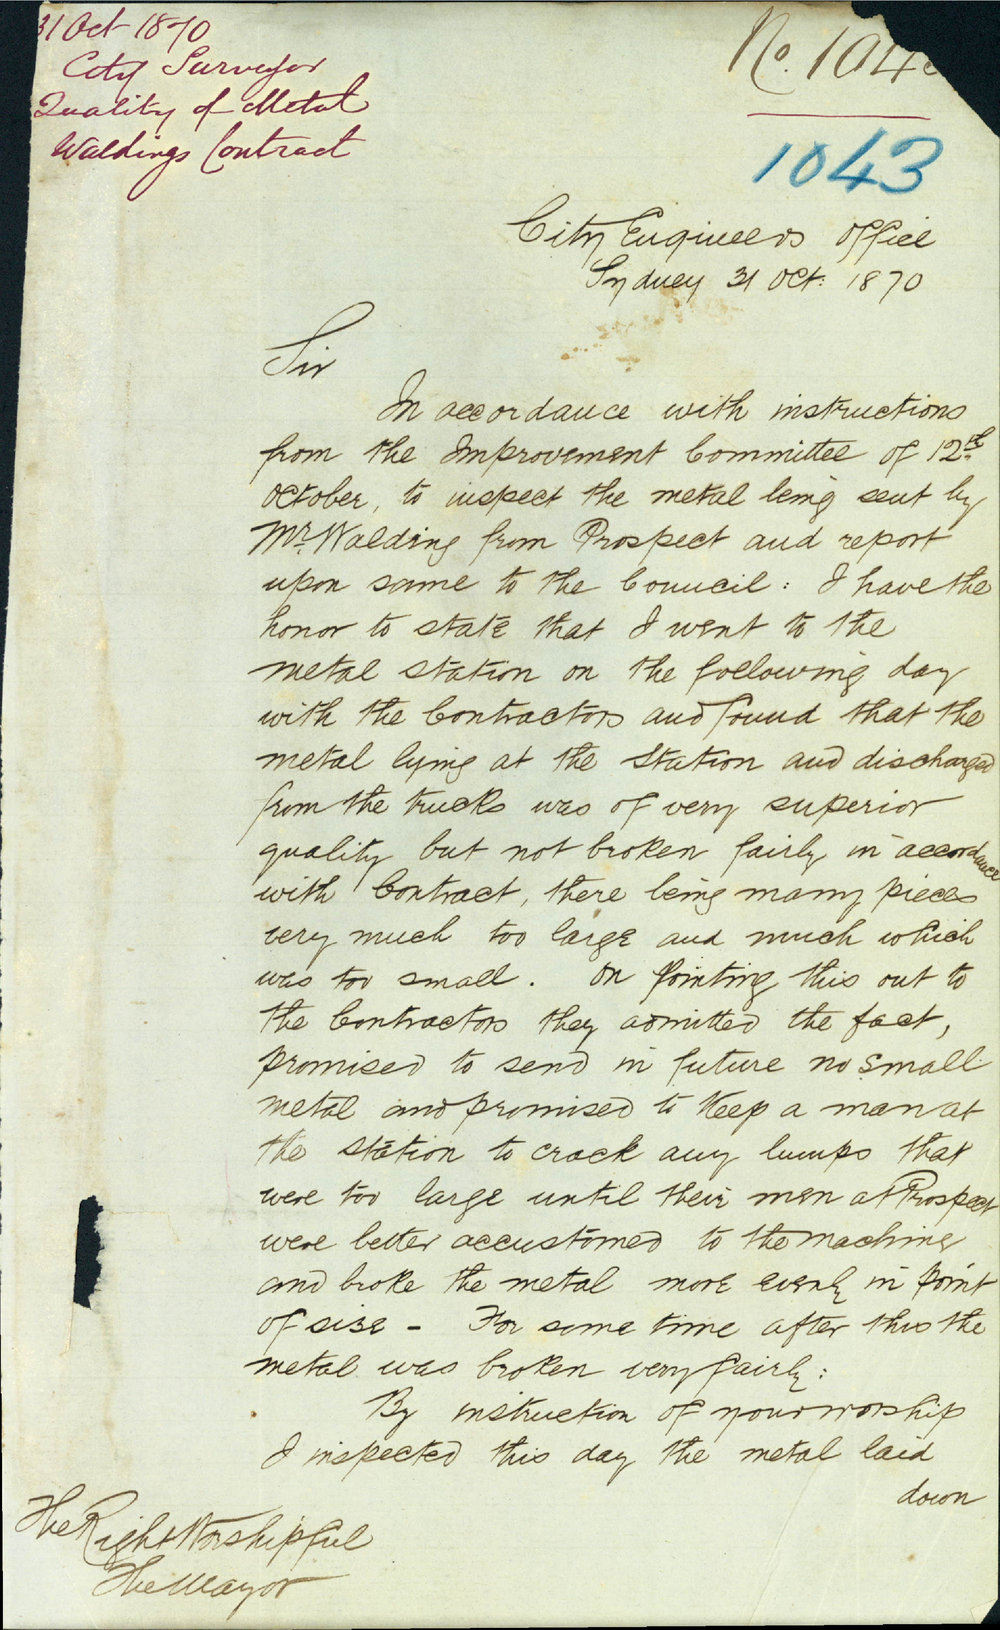 31 Oct 1870
City Surveyor
Quality of Metal
Waldings Contract
No. 104
1043
City Engineers Office
Sydney 31 Oct: 1870
Sir
In accordance with instructions
from the Improvement Committee of 12th
October, to inspect the metal being sent by
Mr. Walding from Prospect and report
upon same to the Council: I have the
honor to state that I went to the
metal station on the following day
with the Contractors and found that the
metal lying at the Station and discharged
from the trucks was of very superior
quality but not broken fairly in accordance
with Contract, there being many pieces
very much too large and much which
was too small. On pointing this out to
the Contractors they admitted the fact,
promised to send in future no small
metal and promised to keep a man at
the station to crack any lumps that
were too large until their men at Prospect
were better accustomed to the machine
and broke the metal more evenly in point
of size - For some time after this the
metal was broken very fairly:
By instruction of your worship
I inspected this day the metal laid
down
The Right Worshipful
The Mayor